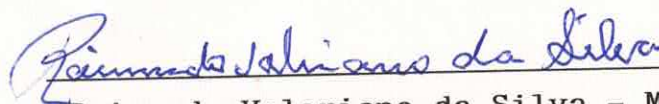 Raimundo Valeriano da Silva
Raimundo Valeriano da Silva - M